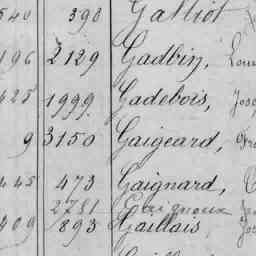 540 398 Galliot
196 2129 Gadbin, Loui
425 1999 Gadebois, Jose
9 3150 Gaigeard,
445 473 Gaignard,
2781
409 893 Gaillais